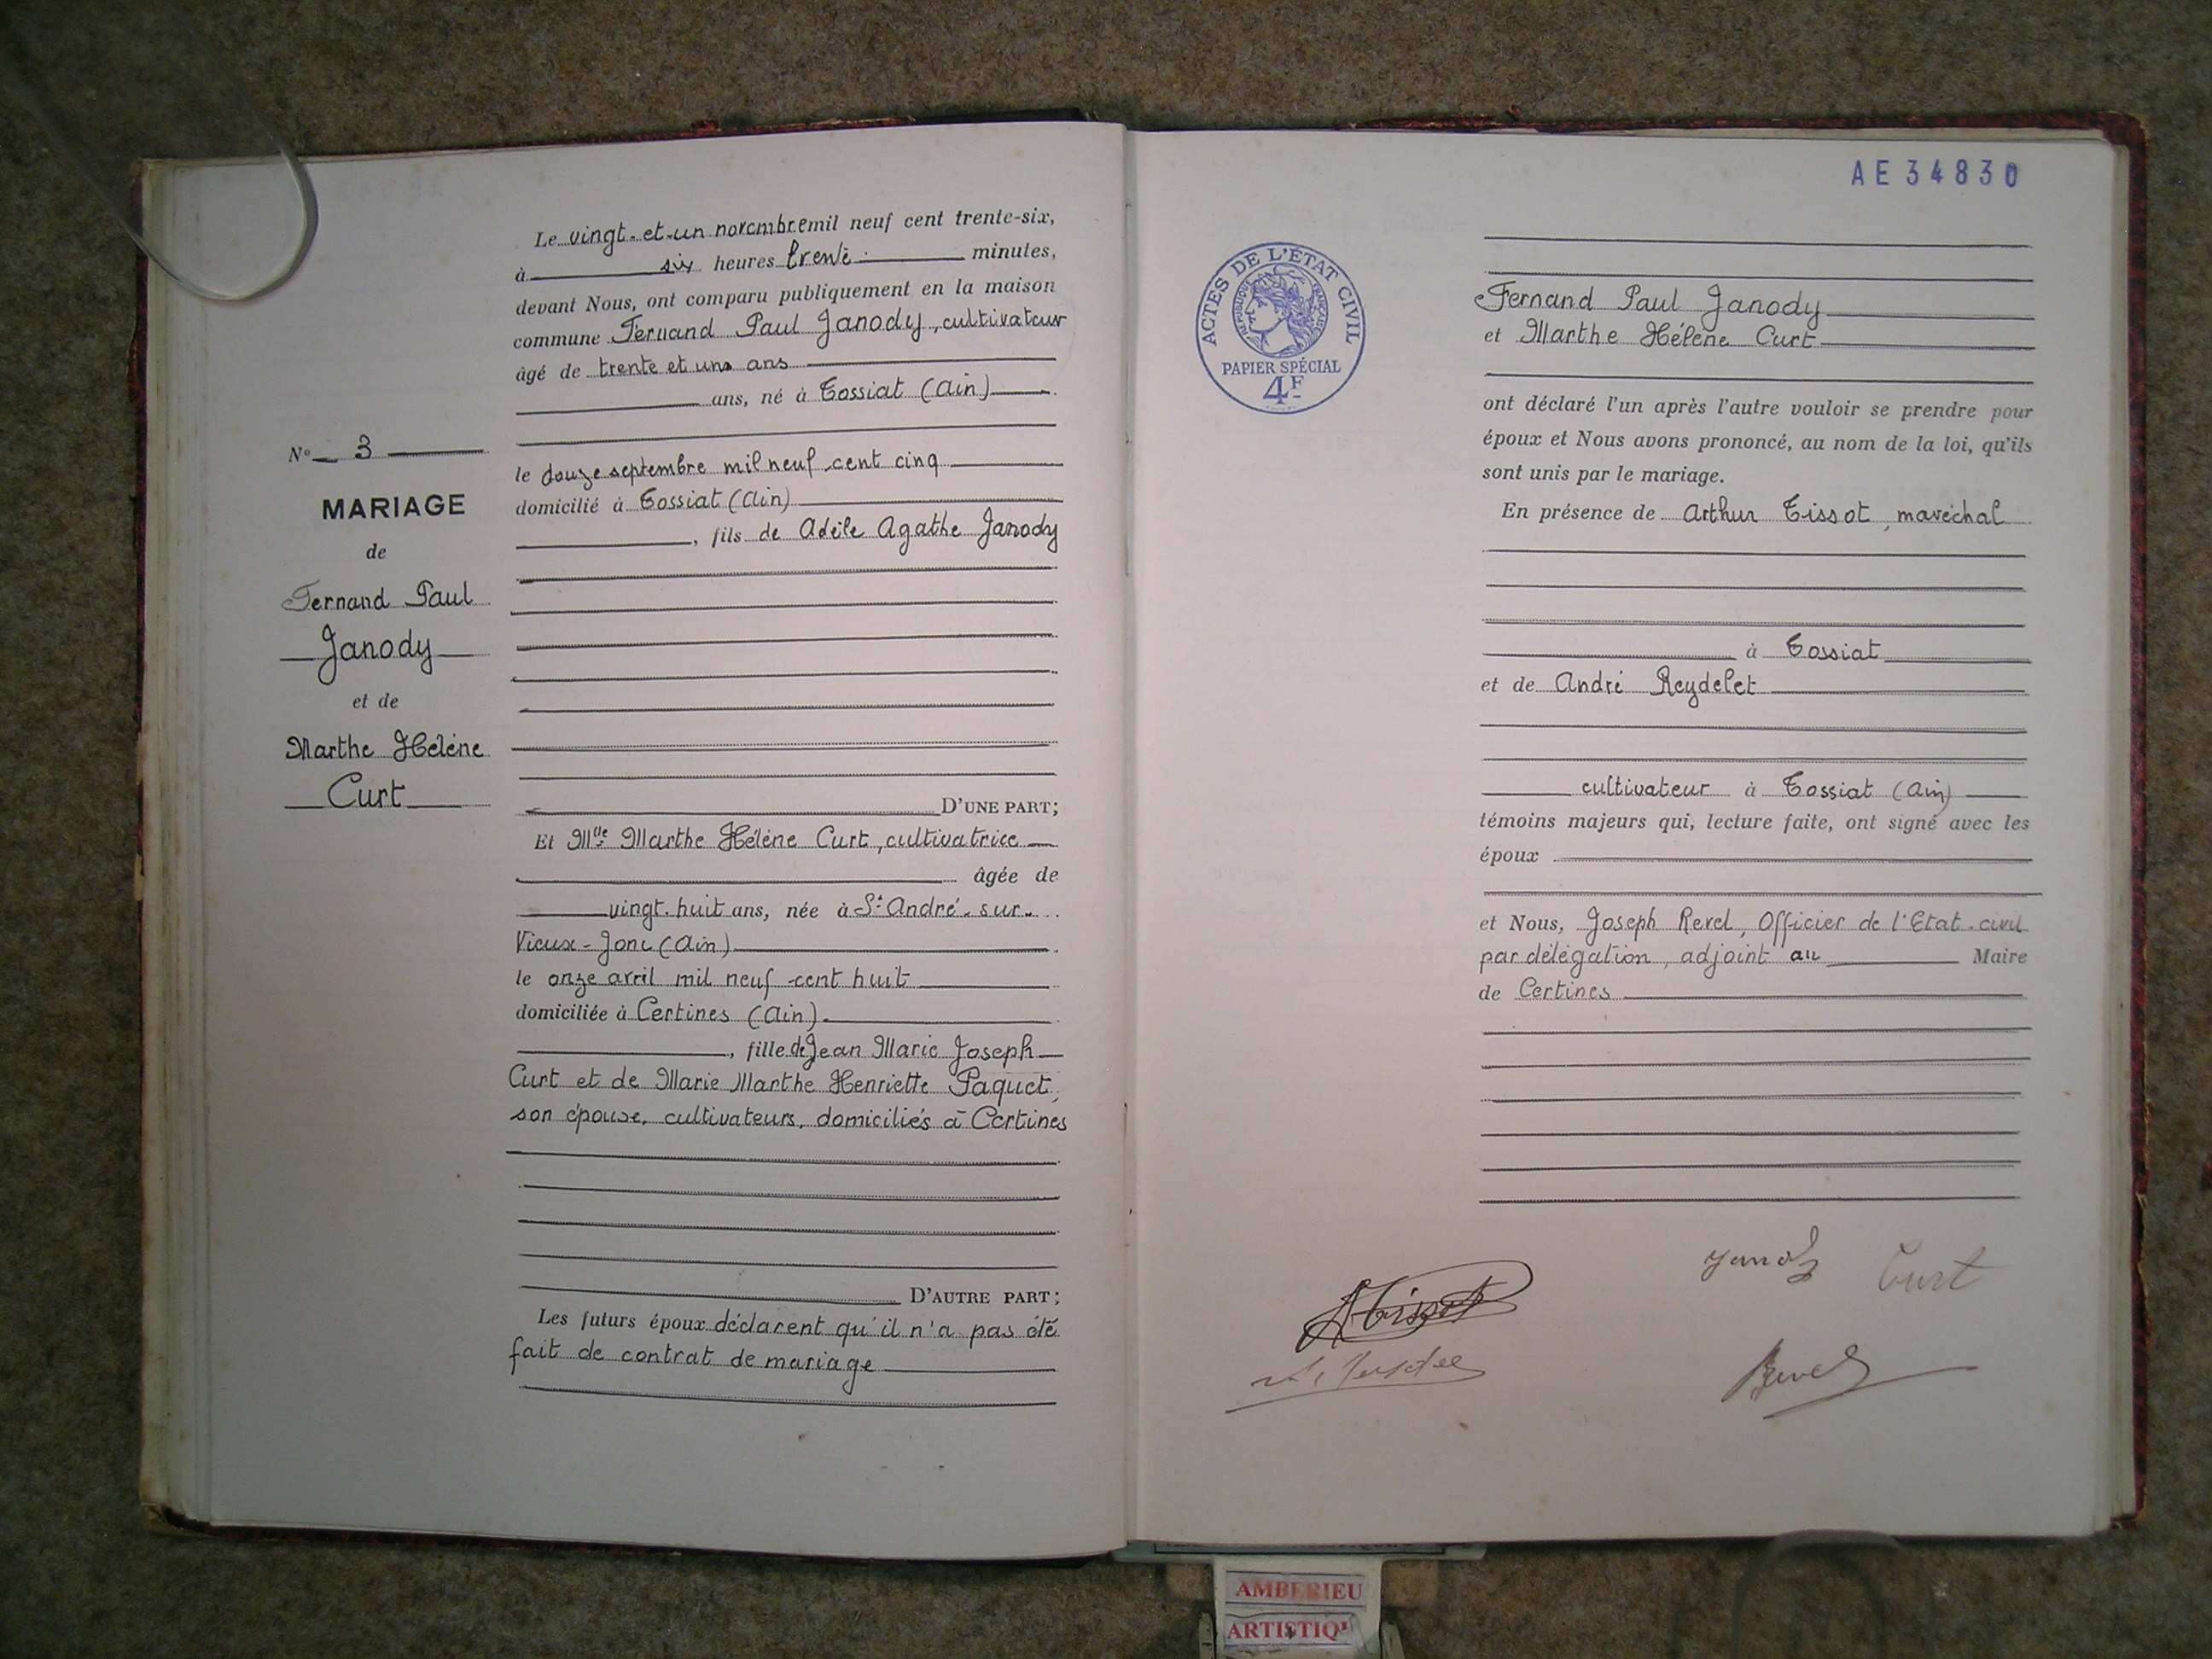 Le vingt-et-un novembre mil neuf cent trente-six,
à six heures trente minutes,
devant Nous, ont comparu publiquement en la maison
commune Fernand Paul Janody, cultivateur
âgé de trente et un ans
ans, né à Tossiat (Ain)
le douze septembre mil neuf cent cinq
domicilié à Tossiat (Ain)
, fils de Adèle Agathe Janody
D'UNE PART;
Et Mlle Marthe Hélène Curt, cultivatrice
âgée de
vingt-huit ans, née à St André-sur-
Vieux-Jonc (Ain)
le onze avril mil neuf-cent huit
domiciliée à Certines (Ain)
, fille de Jean Marie Joseph
Curt et de Marie Marthe Henriette Paquet,
son épouse, cultivateurs, domiciliés à Certines
D'AUTRE PART;
Les futurs époux déclarent qu'il n'a pas été
fait de contrat de mariage
N° 3
MARIAGE
de
Fernand Paul
Janody
et de
Marthe Hélène
Curt
AE34830
ACTES DE L'ÉTAT CIVIL
RÉPUBLIQUE FRANÇAISE
PAPIER SPÉCIAL
4F
Fernand Paul Janody
et Marthe Hélène Curt
ont déclaré l'un après l'autre vouloir se prendre pour
époux et Nous avons prononcé, au nom de la loi, qu'ils
sont unis par le mariage.
En présence de Arthur Tissot, maréchal
à Tossiat
et de André Reydelet
cultivateur à Tossiat (Ain)
témoins majeurs qui, lecture faite, ont signé avec les
époux
et Nous, Joseph Revel, Officier de l'Etat-civil
par délégation, adjoint au Maire
de Certines
Janody Curt
A Tissot
Revel
AMBERIEU
ARTISTIQ